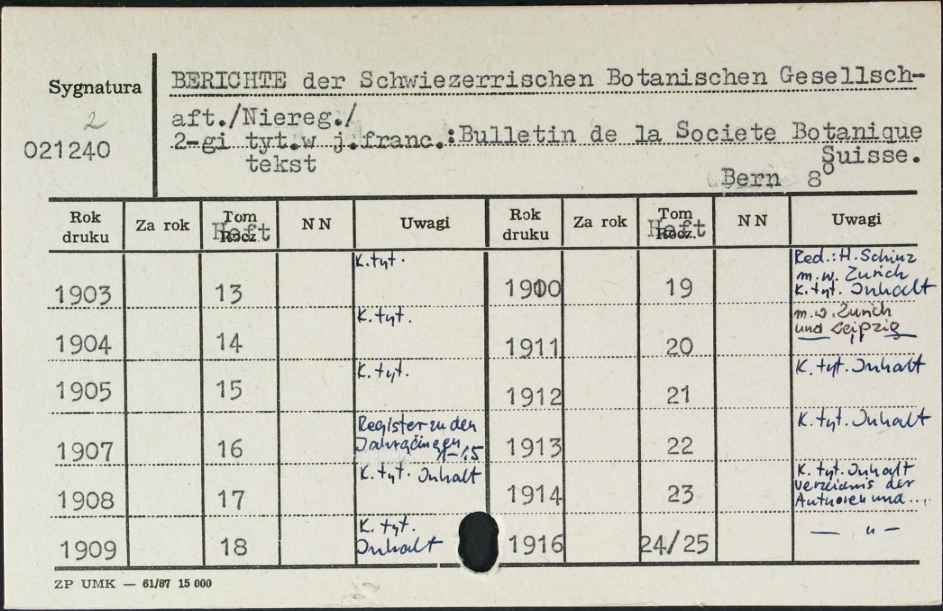 Sygnatura
2
021240
BERICHTE der Schwiezerrischen Botanischen Gesellsch-
aft./Niereg./
2-gi tyt.w j.franc.:Bulletin de la Societe Botanique
tekst Suisse.
Bern 8°
Rok druku Za rok Tom Heft Rocz. NN Uwagi Rok druku Za rok Tom Heft Rocz. NN Uwagi
1903 13 K.tyt. 1910 19 Red.: H. Schinz m.w. Zurich K.tyt. Inhalt
1904 14 K.tyt. 1911 20 m.w. Zurich und Leipzig
1905 15 K.tyt. 1912 21 K.tyt. Inhalt
1907 16 Register zu den Jahrgängen 1-15 1913 22 K.tyt. Inhalt
1908 17 K.tyt. Inhalt 1914 23 K.tyt. Inhalt Verzeichnis der Authoren und...
1909 18 K.tyt. Inhalt 1916 24/25 — " —
ZP UMK — 61/87 15 000